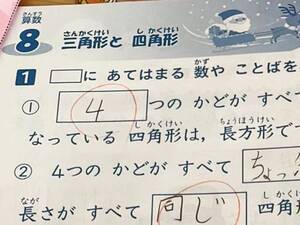 さんすう
算数
8 三角形と 四角形
さんかくけい しかくけい
1 □に あてはまる 数や ことばを
かず
① 4 つの かどが すべて
なっている 四角形は、長方形で
しかくけい ちょうほうけい
② 4つの かどが すべて ちょっ
長さが すべて 同じ 四角形
なが しかく